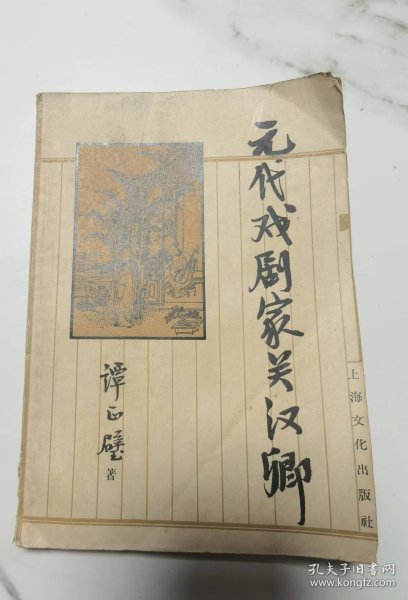 元代戏剧家关汉卿
谭正璧
著
上海文化出版社
孔夫子旧书网
www.kongfz.com